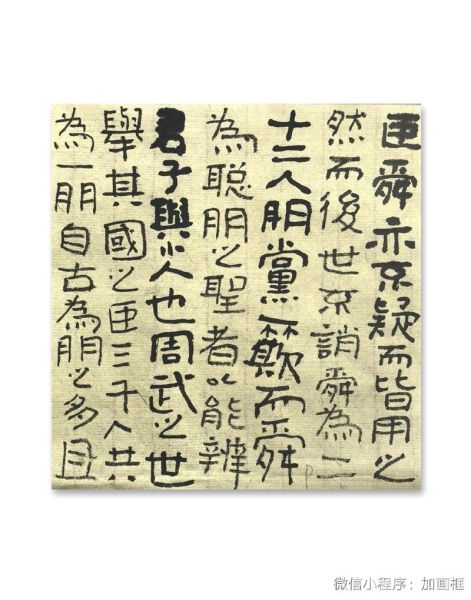 臣舜亦不疑而皆用之
然而後世不誚舜為二
十二人朋黨欺而舜
為聰明之聖者以能辨
君子與小人也周武之世
舉其國之臣三千人共
為一朋自古為朋之多且
微信小程序：加画框